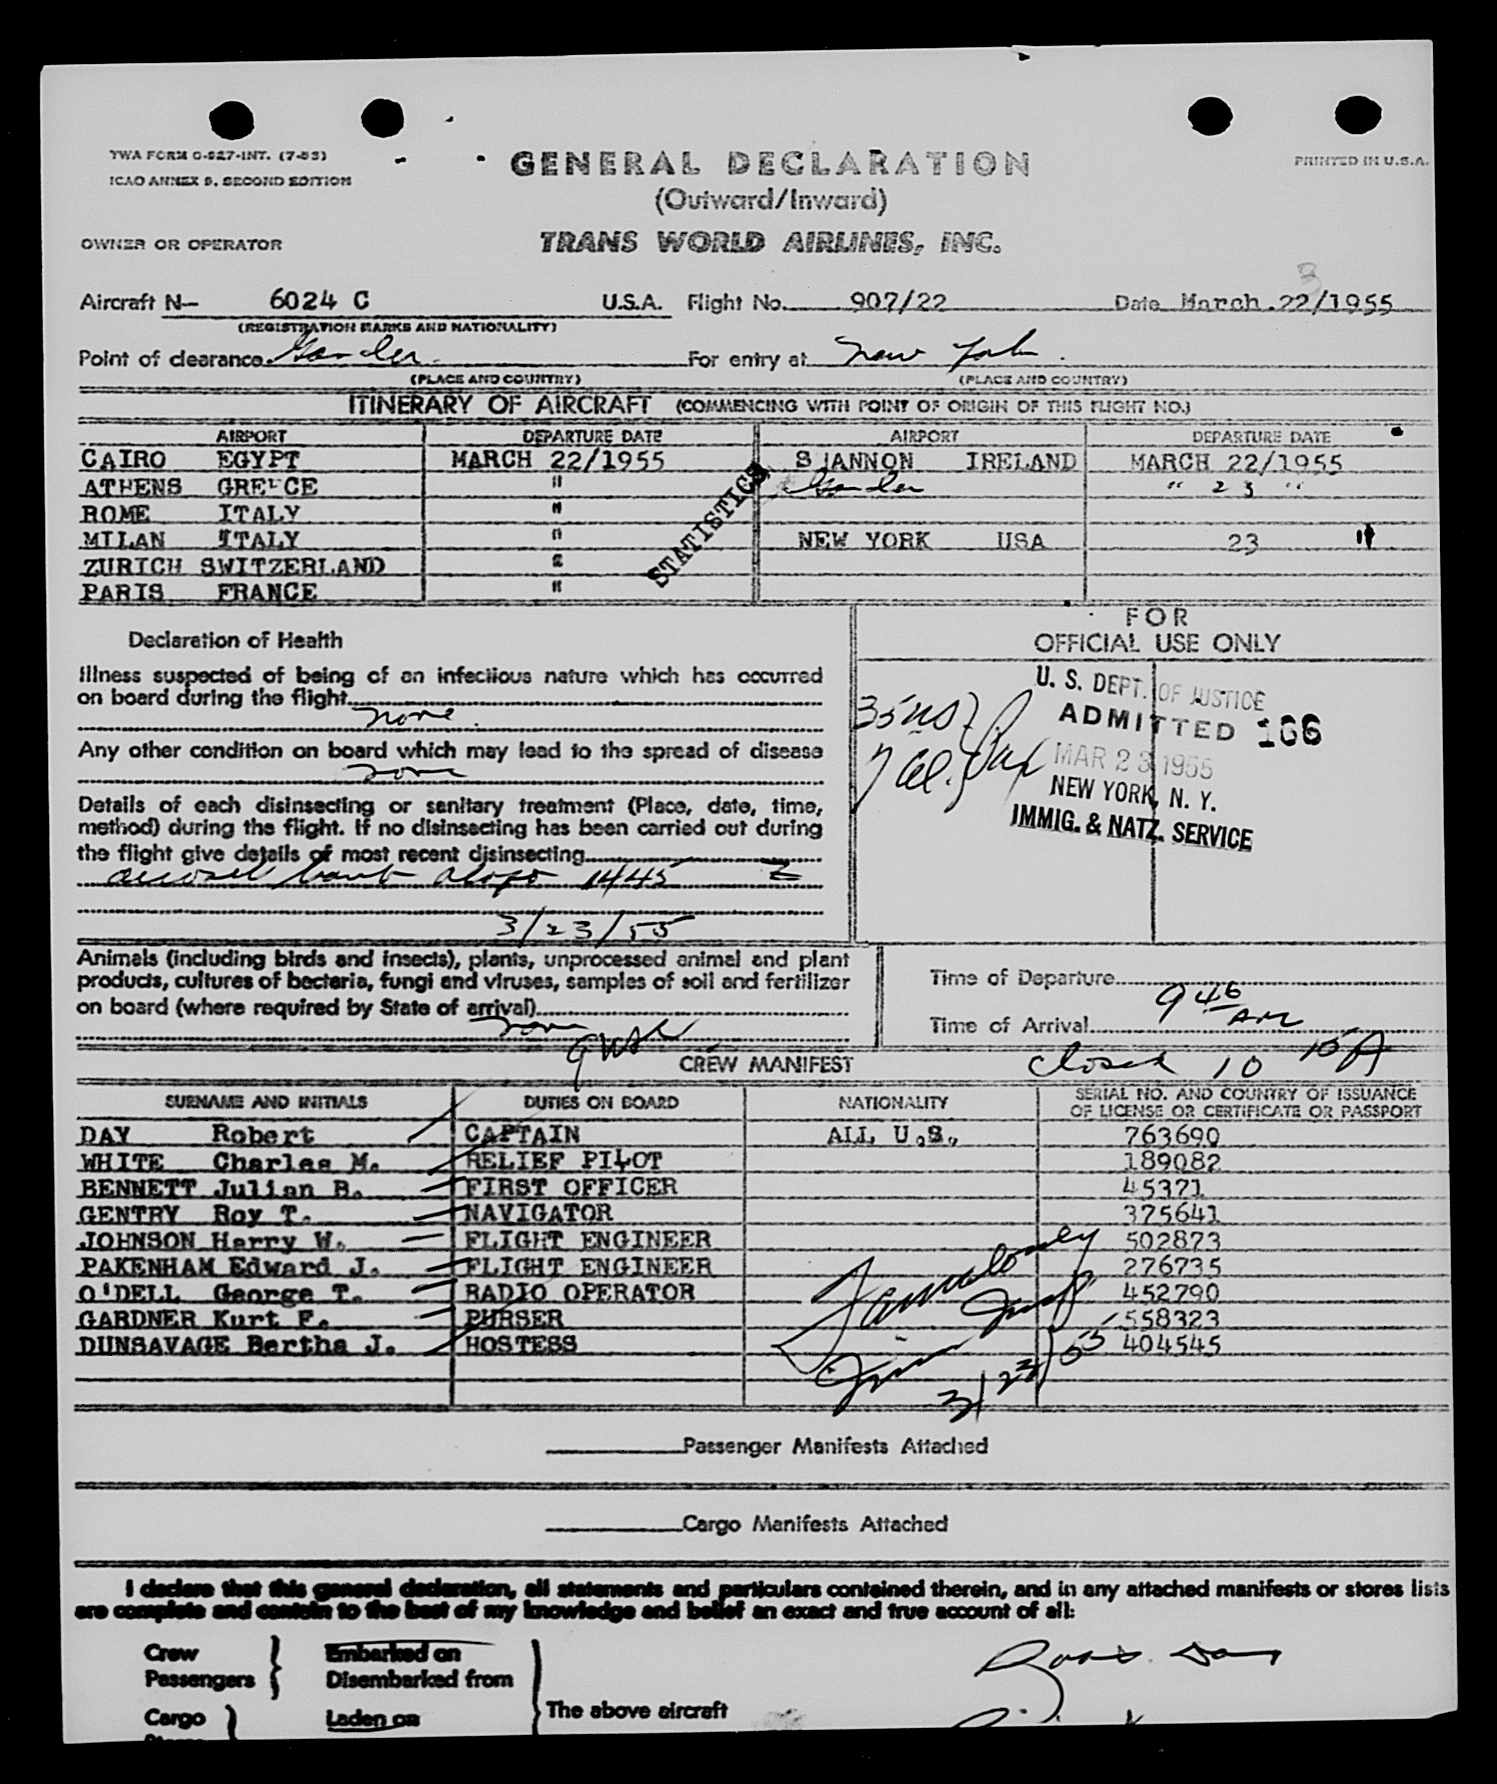 TWA FORM O-527-INT. (7-53)
ICAO ANNEX 9, SECOND EDITION
GENERAL DECLARATION
PRINTED IN U.S.A.
(Outward/Inward)
OWNER OR OPERATOR
TRANS WORLD AIRLINES, INC.
3
Aircraft N- 6024 C U.S.A. Flight No. 907/22 Date March.22/1955
(REGISTRATION MARKS AND NATIONALITY)
Point of clearance Gander For entry at New York
(PLACE AND COUNTRY) (PLACE AND COUNTRY)
ITINERARY OF AIRCRAFT (COMMENCING WITH POINT OF ORIGIN OF THIS FLIGHT NO.)
AIRPORT DEPARTURE DATE AIRPORT DEPARTURE DATE
CAIRO EGYPT MARCH 22/1955 SHANNON IRELAND MARCH 22/1955
ATHENS GREECE " Gander " 23 "
ROME ITALY "
MILAN ITALY " NEW YORK USA 23 "
ZURICH SWITZERLAND "
PARIS FRANCE "
STATISTICS
FOR
OFFICIAL USE ONLY
Declaration of Health
Illness suspected of being of an infectious nature which has occurred
on board during the flight
none
Any other condition on board which may lead to the spread of disease
none
Details of each disinsecting or sanitary treatment (Place, date, time,
method) during the flight. If no disinsecting has been carried out during
the flight give details of most recent disinsecting
1445 Z
3/23/55
35 US
7 al.
U. S. DEPT. OF JUSTICE
ADMITTED 166
MAR 23 1955
NEW YORK, N. Y.
IMMIG. & NATZ. SERVICE
Animals (including birds and insects), plants, unprocessed animal and plant
products, cultures of bacteria, fungi and viruses, samples of soil and fertilizer
on board (where required by State of arrival)
none
Time of Departure
Time of Arrival 9 46 AM
closed 10 15 A
CREW MANIFEST
SURNAME AND INITIALS DUTIES ON BOARD NATIONALITY SERIAL NO. AND COUNTRY OF ISSUANCE
OF LICENSE OR CERTIFICATE OR PASSPORT
DAY Robert CAPTAIN ALL U.S. 763690
WHITE Charles M. RELIEF PILOT 189082
BENNETT Julian B. FIRST OFFICER 45371
GENTRY Roy T. NAVIGATOR 375641
JOHNSON Harry W. FLIGHT ENGINEER 502873
PAKENHAM Edward J. FLIGHT ENGINEER 276735
O'DELL George T. RADIO OPERATOR 452790
GARDNER Kurt F. PURSER 558323
DUNSAVAGE Bertha J. HOSTESS 404545
3/23/55
Passenger Manifests Attached
Cargo Manifests Attached
I declare that this general declaration, all statements and particulars contained therein, and in any attached manifests or stores lists
are complete and contain to the best of my knowledge and belief an exact and true account of all:
Crew Embarked on
Passengers Disembarked from
The above aircraft
Cargo Laden on
Stores